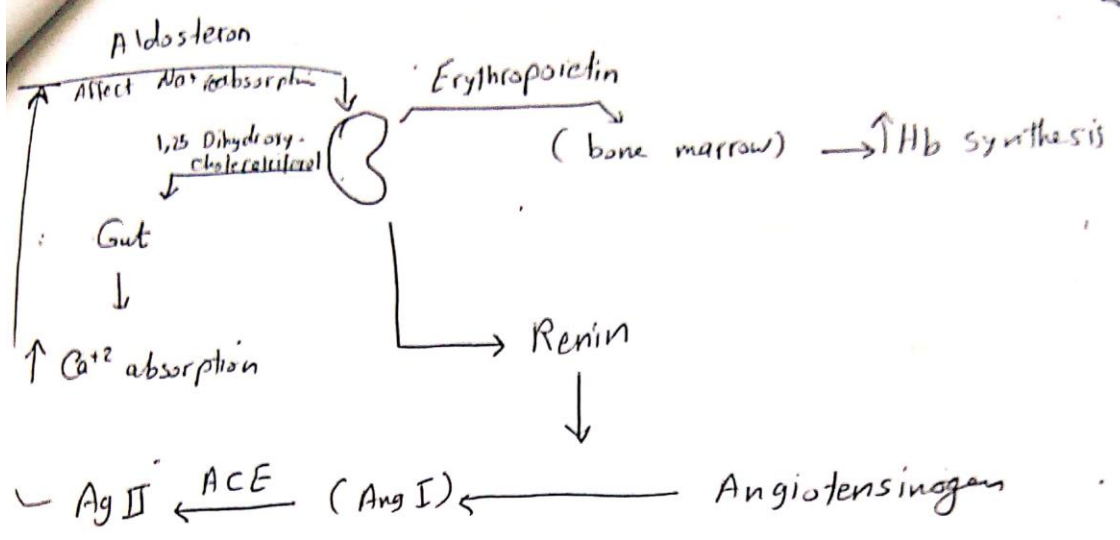 Aldosteron
Affect Na+ reabsorptin
Erythropoietin
1,25 Dihydroxy-
cholecalciferol
(bone marrow) → ↑Hb synthesis
Gut
↓
↑ Ca+2 absorption
Renin
↓
Ag II ← ACE (Ang I) ← Angiotensinogen